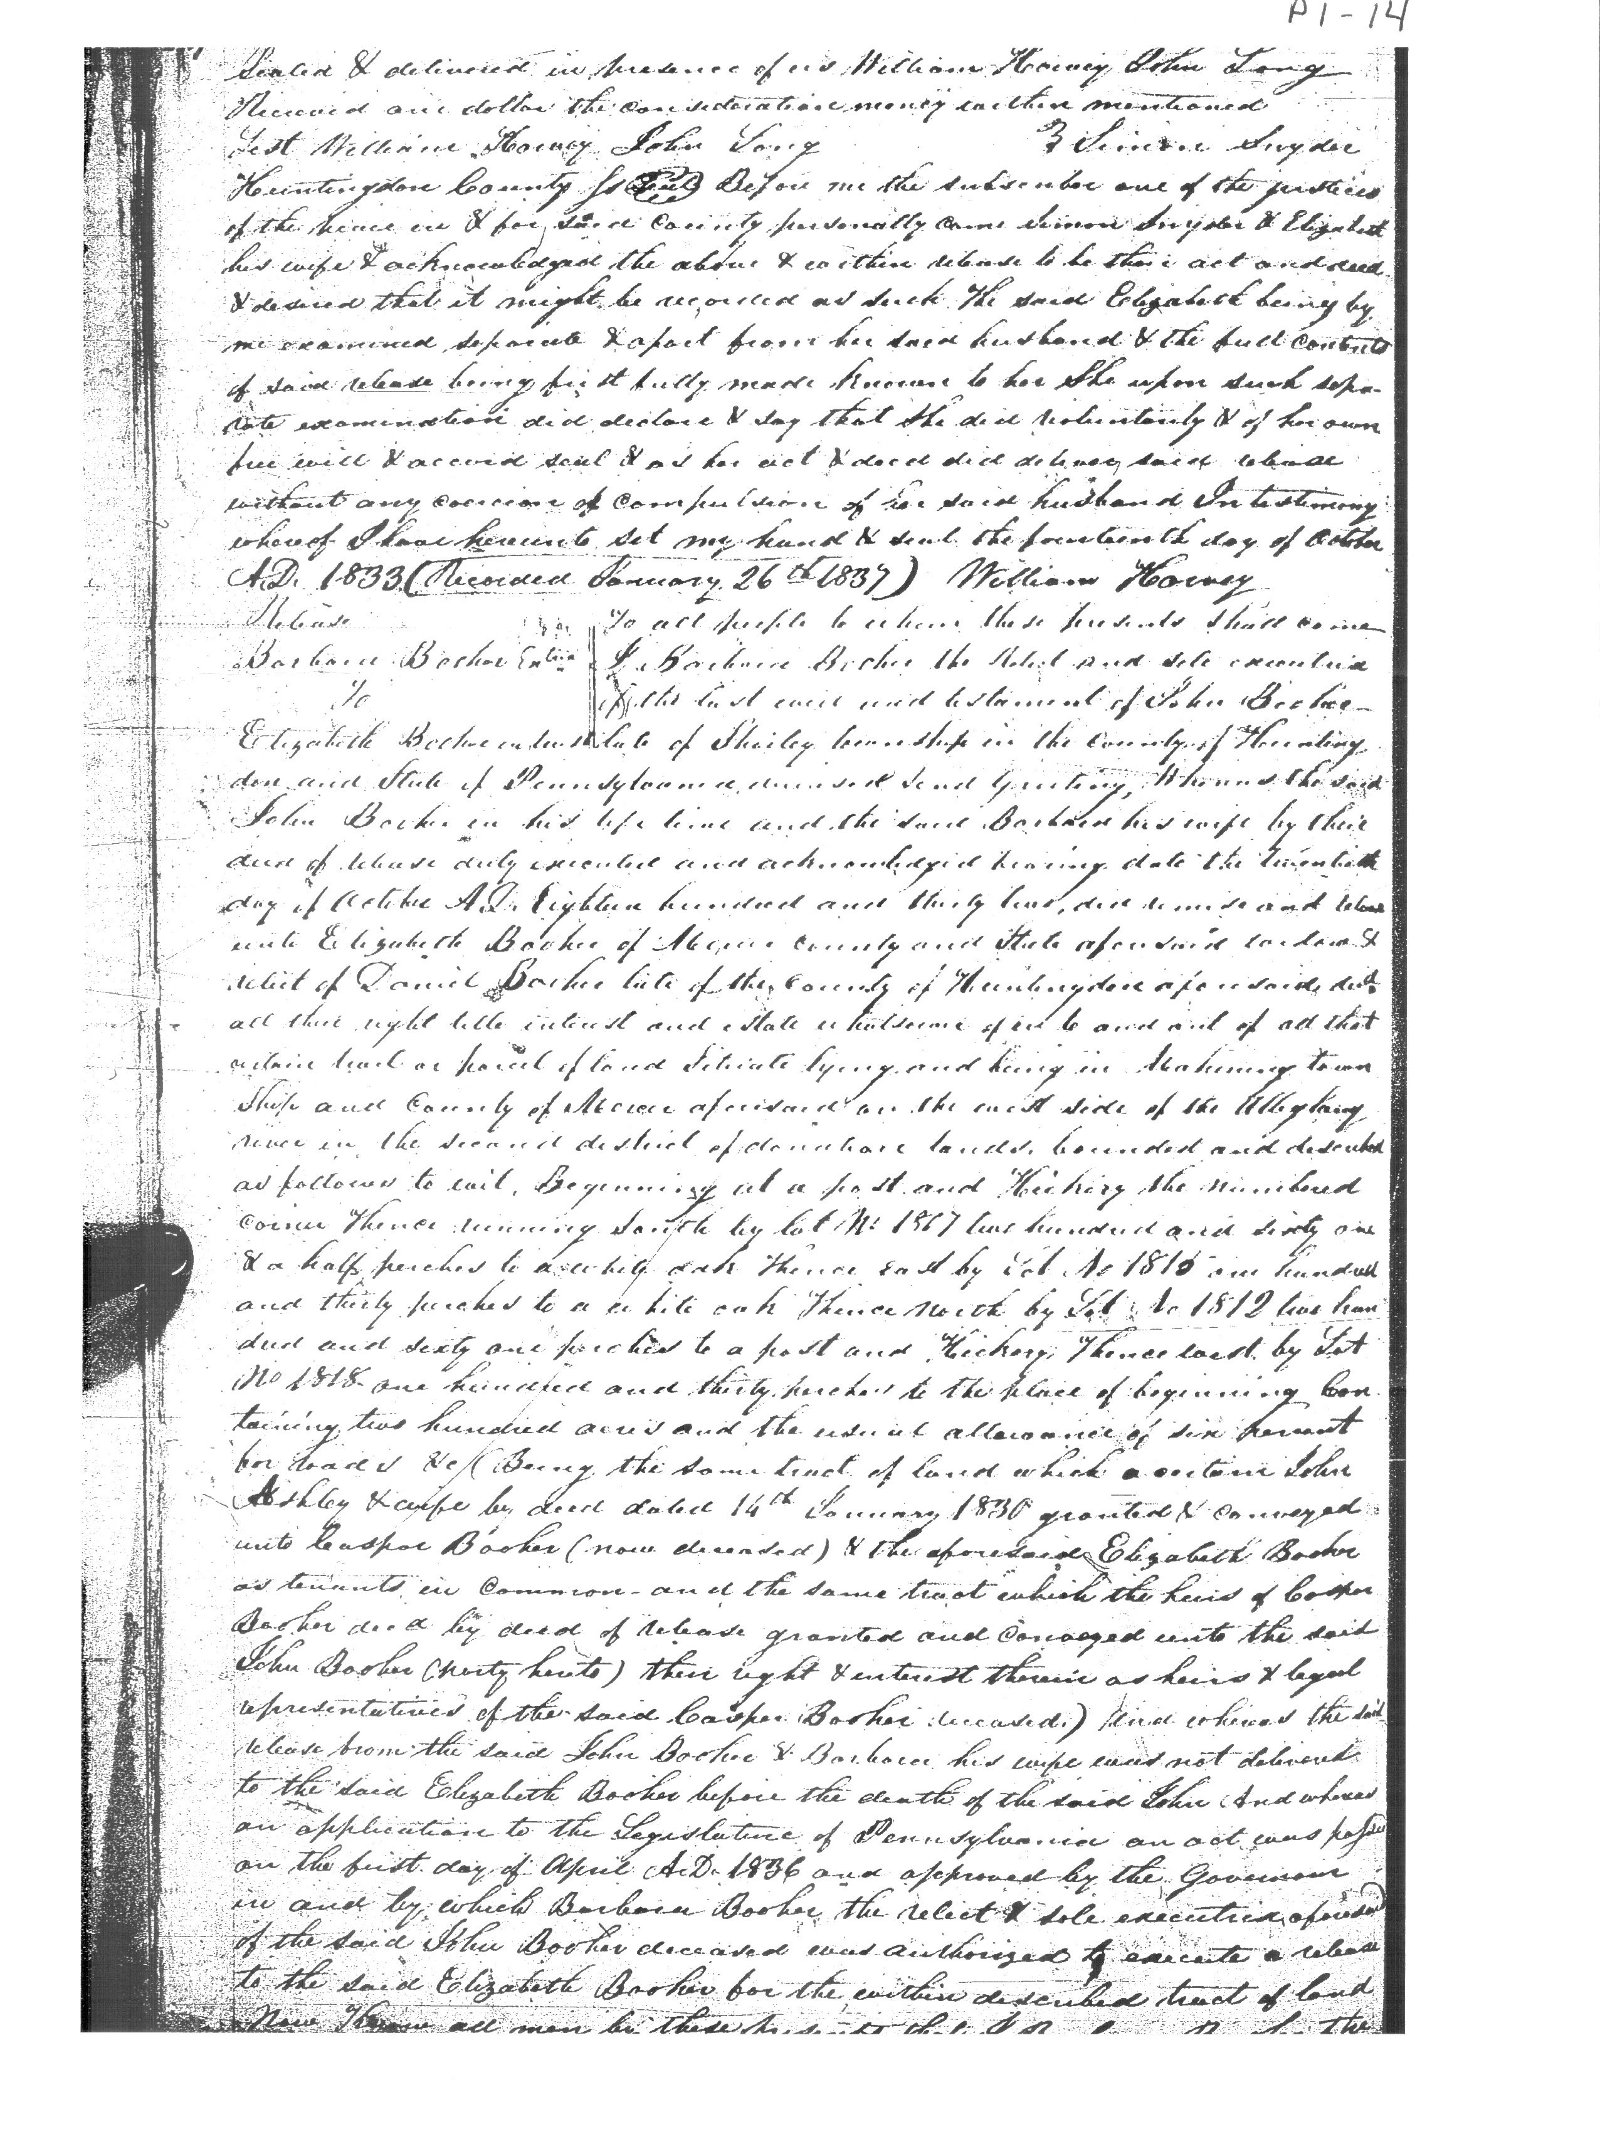 P1-14
Sealed & delivered in presence of us William Harvey John Long
Received one dollar the consideration money within mentioned
Test William Harvey John Long } Simon Snyder
Huntingdon County Ss (Seal) Before me the subscriber one of the justices
of the peace in & for said County personally came Simon Snyder & Elizabeth
his wife & acknowledged the above & within release to be their act and deed
& desired that it might be recorded as such The said Elizabeth being by
me examined separate & apart from her said husband & the full contents
of said release being first fully made known to her She upon such sepa-
rate examination did declare & say that She did voluntarily & of her own
free will & accord seal & as her act & deed did deliver said release
without any coercion of compulsion of her said husband In testimony
whereof I have hereunto set my hand & seal the fourteenth day of October
A.D. 1833 (Recorded January 26th 1837) William Harvey
Release To all people to whom these presents shall come
Barbara Booher Extrix I Barbara Booher the Relict and sole executrix
To of the last will and testament of John Booher
Elizabeth Booher late of Shirley township in the County of Hunting
don and State of Pennsylvania deceased Send Greeting, Whereas the said
John Booher in his life time and the said Barbara his wife by their
deed of release duly executed and acknowledged bearing date the twentieth
day of October A.D. Eighteen hundred and thirty two, did remise and release
unto Elizabeth Booher of Mercer County and State aforesaid widow &
relict of Daniel Booher late of the County of Huntingdon aforesaid decd
all their right title interest and estate whatsoever of in to and out of all that
certain tract or parcel of land Situate lying and being in Mahoning town
Ship and County of Mercer aforesaid on the west side of the Allegheny
river in the second district of donation lands, bounded and described
as follows to wit, Beginning at a post and Hickory the numbered
corner Thence running South by lot No 1867 two hundred and sixty one
& a half perches to a white oak Thence east by Lot No 1815 one hundred
and thirty perches to a white oak Thence North by Lot No 1812 two hun
dred and sixty one perches to a post and Hickory, Thence west by Lot
No 1818 one hundred and thirty perches to the place of beginning Con
taining two hundred acres and the usual allowance of six percent
for roads &c (Being the same tract of land which a certain John
Ashley & wife by deed dated 14th January 1830 granted & conveyed
unto Caspar Booher (now deceased) & the aforesaid Elizabeth Booher
as tenants in Common and the same tract which the heirs of Casper
Booher decd by deed of release granted and conveyed unto the said
John Booher (party hereto) their right & interest therein as heirs & legal
representatives of the said Casper Booher deceased.) And whereas the said
release from the said John Booher & Barbara his wife was not delivered
to the said Elizabeth Booher before the death of the said John And whereas
on application to the Legislature of Pennsylvania an act was passed
on the first day of April A.D. 1836 and approved by the Governour
in and by which Barbara Booher the relict & sole executrix aforesaid
of the said John Booher deceased was authorized to execute a release
to the said Elizabeth Booher for the within described tract of land
Now Know all men by these presents that I the